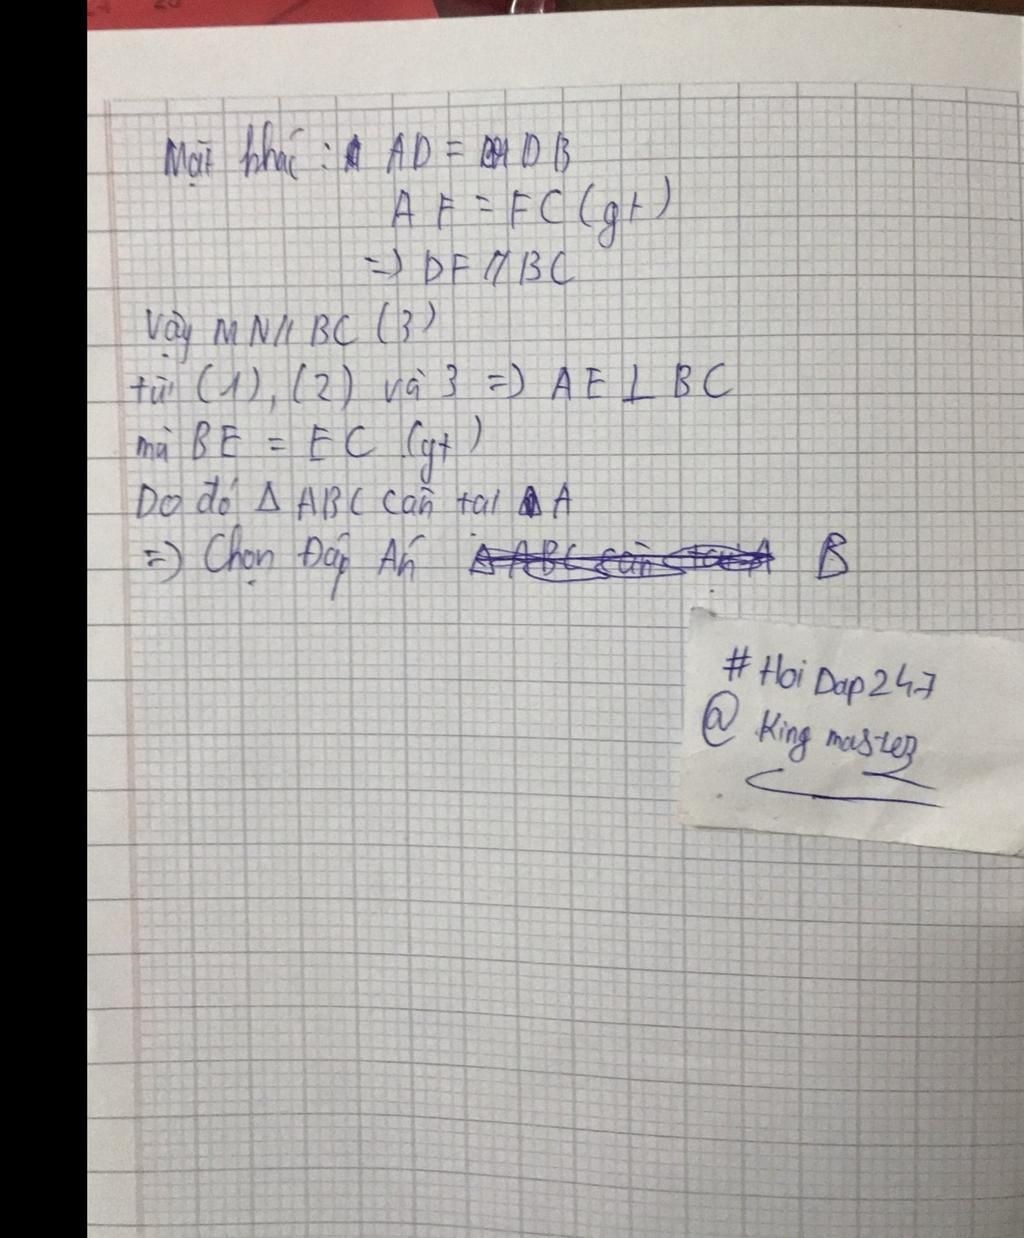 Mặt khác: AD = DB
AF = FC (gt)
=> DF // BC
Vậy MN // BC (3)
từ (1), (2) và 3 => AE ⊥ BC
mà BE = EC (gt)
Do đó Δ ABC cân tại A
=> Chọn Đáp Án B
# Hoi Dap 247
@ King master